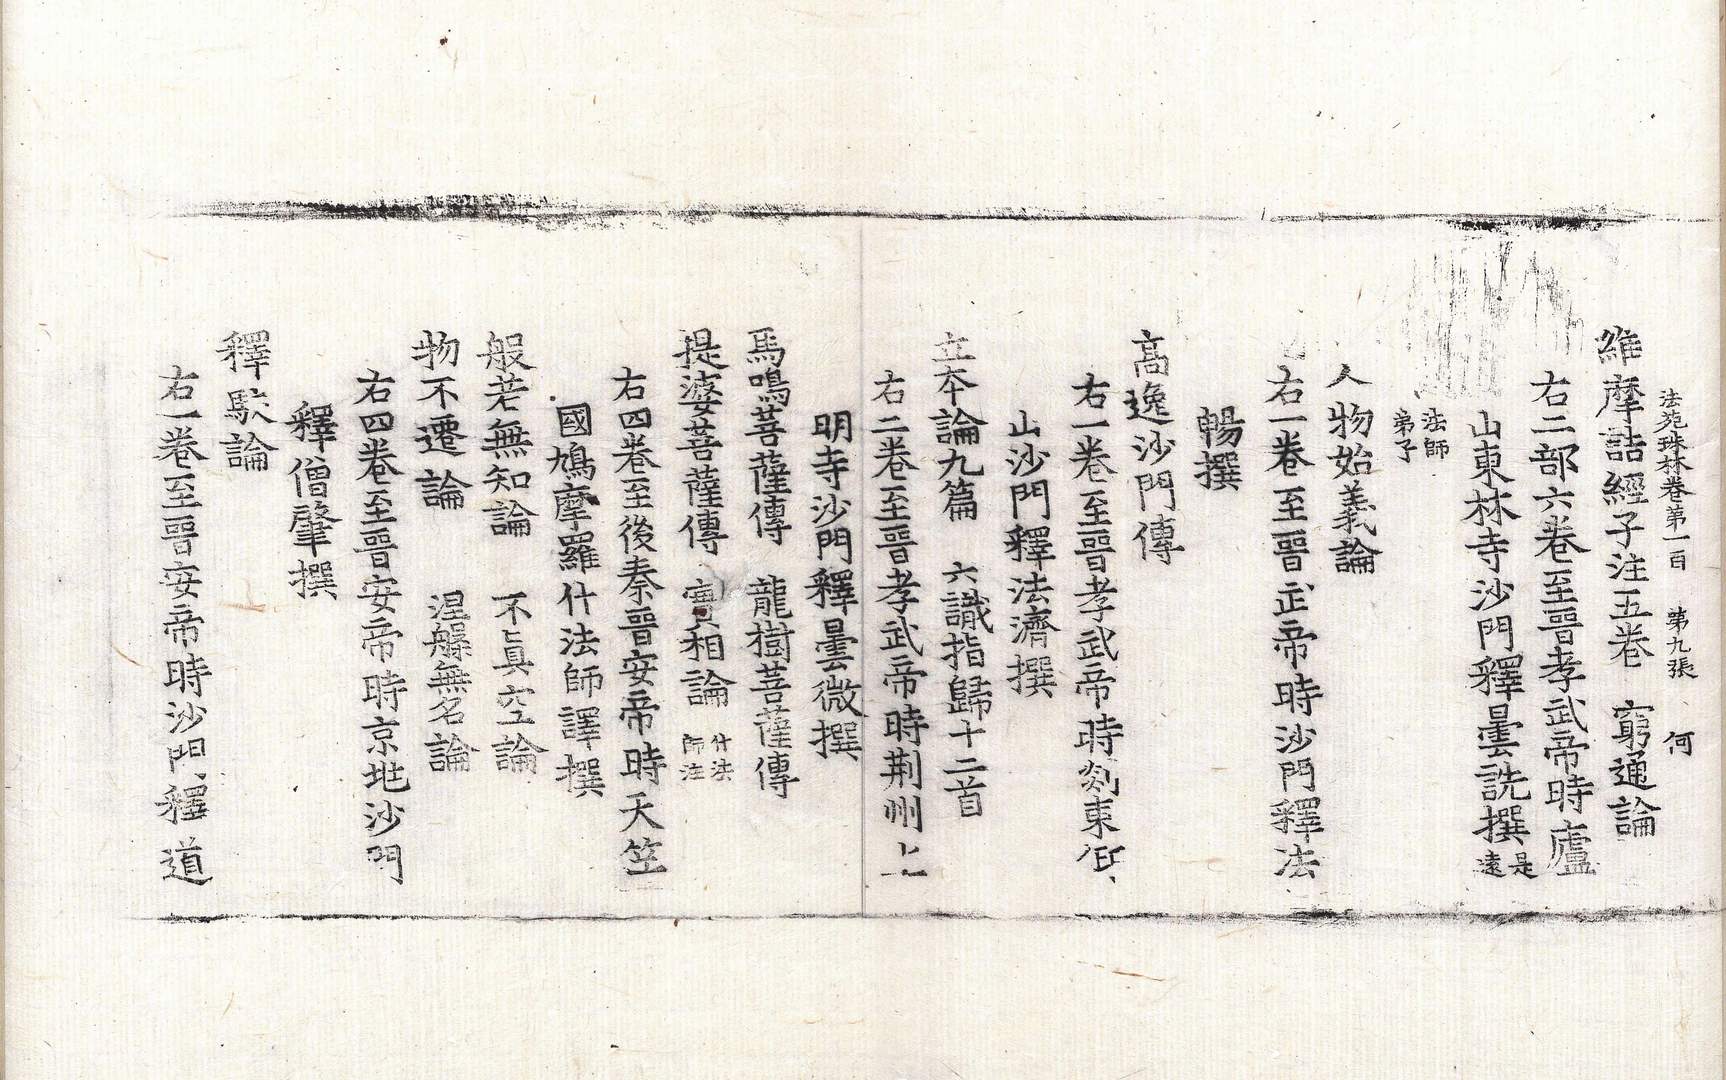 法苑珠林卷第一百　第九張　何
維摩詰經子注五卷　窮通論
右二部六卷至晉孝武帝時廬
山東林寺沙門釋曇詵撰是遠
法師弟子
人物始義論
右一卷至晉武帝時沙門釋法
暢撰
高逸沙門傳
右一卷至晉孝武帝時剡東仰
山沙門釋法濟撰
立本論九篇　六識指歸十二首
右二卷至晉孝武帝時荆州上
明寺沙門釋曇微撰
馬鳴菩薩傳　龍樹菩薩傳
提婆菩薩傳　實相論什法師注
右四卷至後秦晉安帝時天竺
國鳩摩羅什法師譯撰
般若無知論　不真空論
物不遷論　涅槃無名論
右四卷至晉安帝時京地沙門
釋僧肇撰
釋駁論
右一卷至晉安帝時沙門釋道